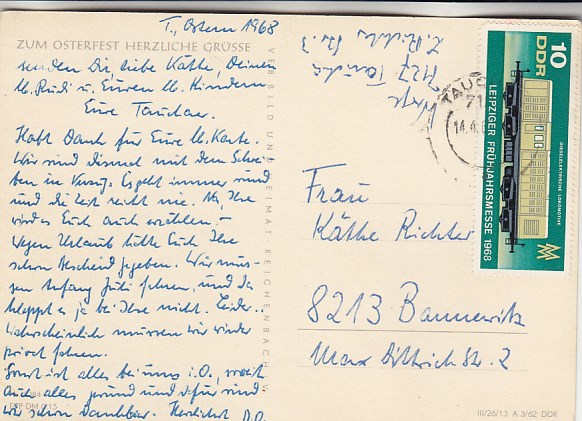 T., Ostern 1968
ZUM OSTERFEST HERZLICHE GRÜSSE
senden Dir, liebe Käthe, Deinem
lb. Rudi u. Euren lb. Kindern
Eure Tauchaer.
Habt Dank für Eure lb. Karte.
Wir sind diesmal mit dem Schrei-
ben in Verzug. Es geht immer rund
und die Zeit reicht nie. Na, Ihr
werdet Euch auch wählen.-
Wegen Urlaub hätte Euch Ihr
schon Bescheid gegeben. Wir müs-
sen Anfang Juli fahren, und da
klappt es ja bei Ihr nicht. Leider..
Wahrscheinlich müssen wir wieder
privat fahren.
Sonst ist alles bei uns i.O., soweit
auch alles gesund und dafür sind
wir schon dankbar. Herzlichst D.O.
VEB BILD UND HEIMAT REICHENBACH I. V.
7127 Taucha
Frau
Käthe Richter
8213 Bannewitz
Max Dittrich Str. 2
TAUCHA
10
DDR
DIESELELEKTRISCHE LOKOMOTIVE
LEIPZIGER FRÜHJAHRSMESSE 1968
MM
III/26/13 A 3/62 DDR